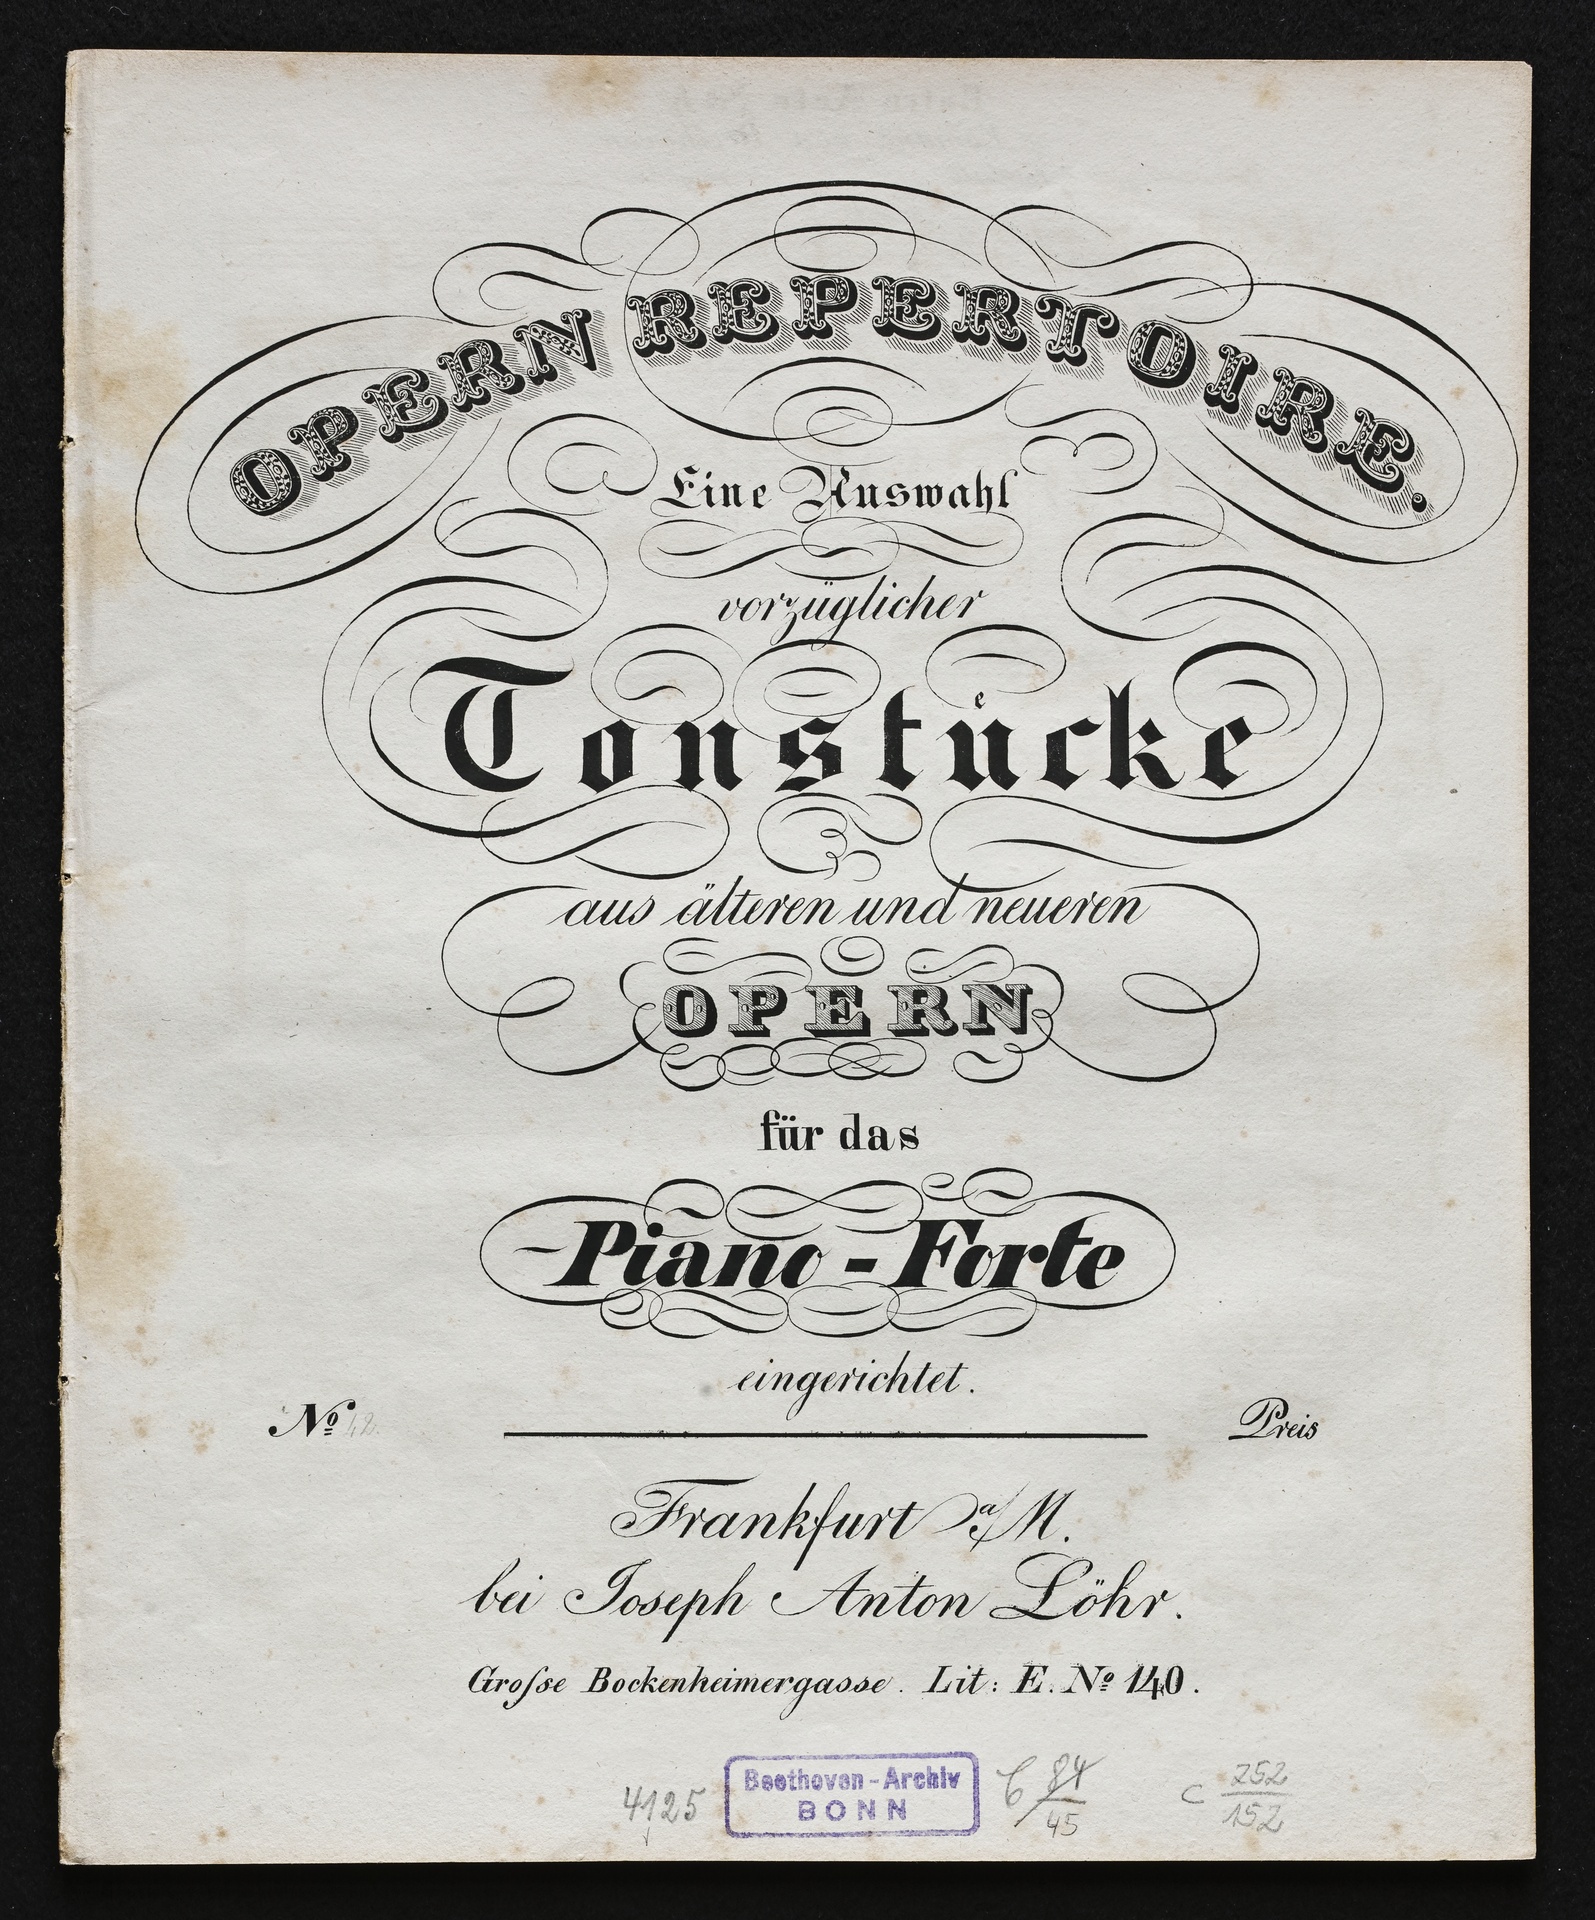 OPERN REPERTOIRE.
Eine Auswahl
vorzüglicher
Tonstücke
aus älteren und neueren
OPERN
für das
Piano-Forte
eingerichtet.
No 42. Preis
Frankfurt a/M.
bei Joseph Anton Löhr.
Groſse Bockenheimergasse. Lit: E. No 140.
4125 Beethoven-Archiv C 84/45 C 252/152
BONN